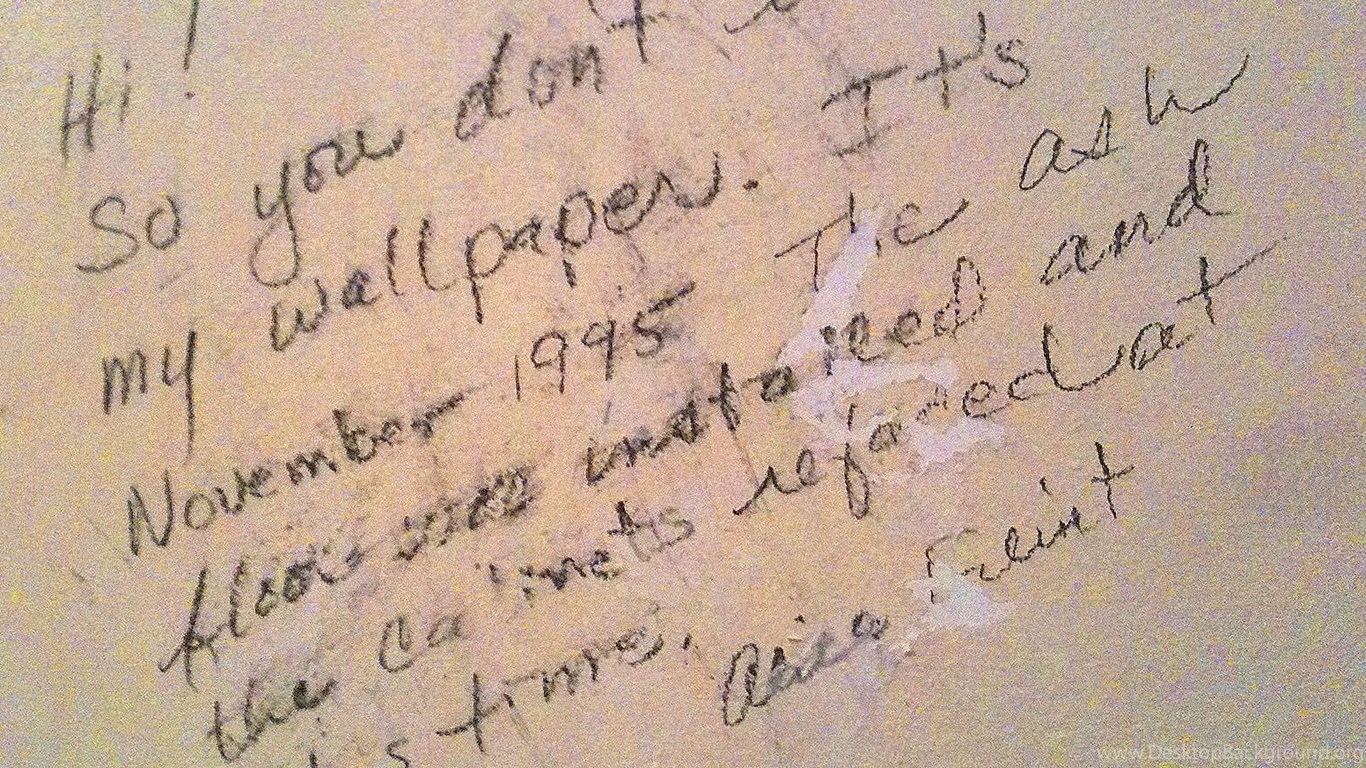 Hi!
So you don't
my wallpaper. It's
November 1995 The ash
floor was installed and
the cabinets refaced at
time.
www.DesktopBackground.org